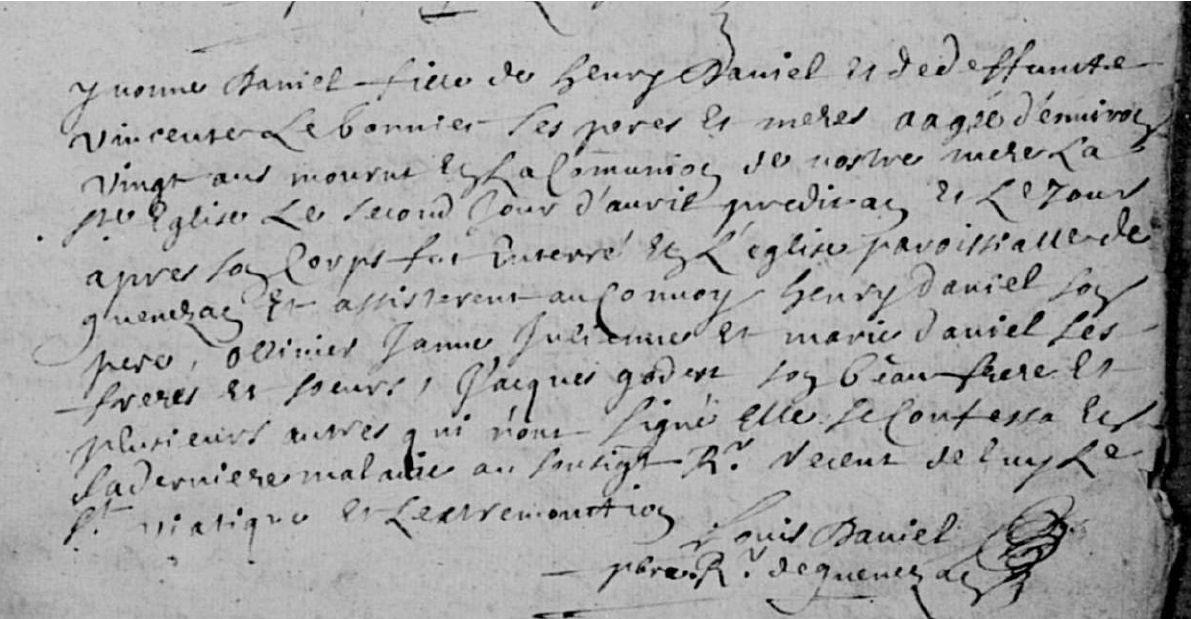 Yvonne Daniel fille de Henry Daniel et de deffuncte
Vincente Le bonnier ses peres et meres aagée d'environ
vingt ans mourut en La Communion de nostre mere La
ste Eglise Le second Jour d'auril predit an et Le Jour
apres son Corps fut Enterré en L'église paroissialle de
guenezac Et assisterent au Convoy Henry daniel son
pere, ollivier Janne Julienne et marie daniel ses
freres et soeurs, Jacques godert son béau frere Et
plusieurs autres qui n'ont signé Elle se Confessa en
sa derniere maladie au soussigt Rr. receut de luy Le
st. viatique et Lextremonction
Louis Daniel
pbre. Rr. de guenezac